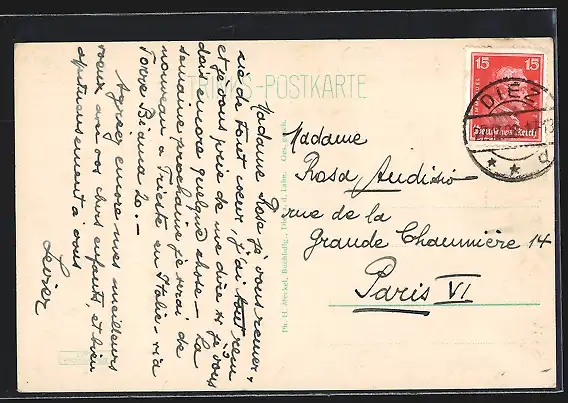 TRINKS-POSTKARTE
Madame Rose je vous remer-
cie de tout coeur, j'ai tout reçu
et je vous prie de me dire si je vous
dois encore quelque chose - La
semaine prochaine je serai de
nouveau a Trieste en Italie - via
Torre Bianca 20. -
Agreez encore mes meilleurs
voeux, avec vos chers enfants, et bien
affectueusement a vous
Levier
Ph. H. Meckel, Buchhdlg., Diez a. d. Lahn. Ges. gesch.
15 15
Deutsches Reich
DIEZ
Madame
Rosa Audisio
rue de la
Grande Chaumière 14
Paris VI